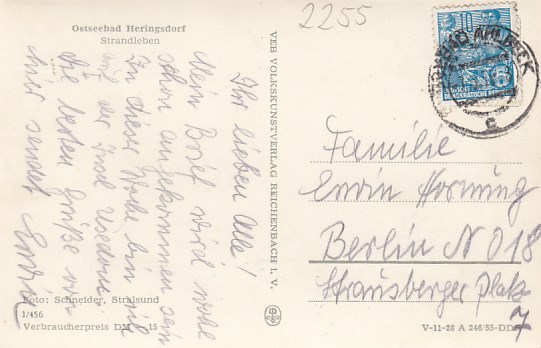 Ostseebad Heringsdorf
Strandleben
2255
Ihr lieben Alle!
Mein Brief wird wohl
schon angekommen sein
In dieser Woche bin ich
auf der Insel Usedom.
Die besten Grüße von
hier sendet Erwin
Foto: Schneider, Stralsund
1/456
Verbraucherpreis DM -.15
VEB VOLKSKUNSTVERLAG REICHENBACH I. V.
DEUTSCHE
DEMOKRATISCHE REPUBLIK
AHLBECK
c
Familie
Erwin Hornung
Berlin NO 18
Strausberger Platz
7
V-11-28 A 246/55-DDR